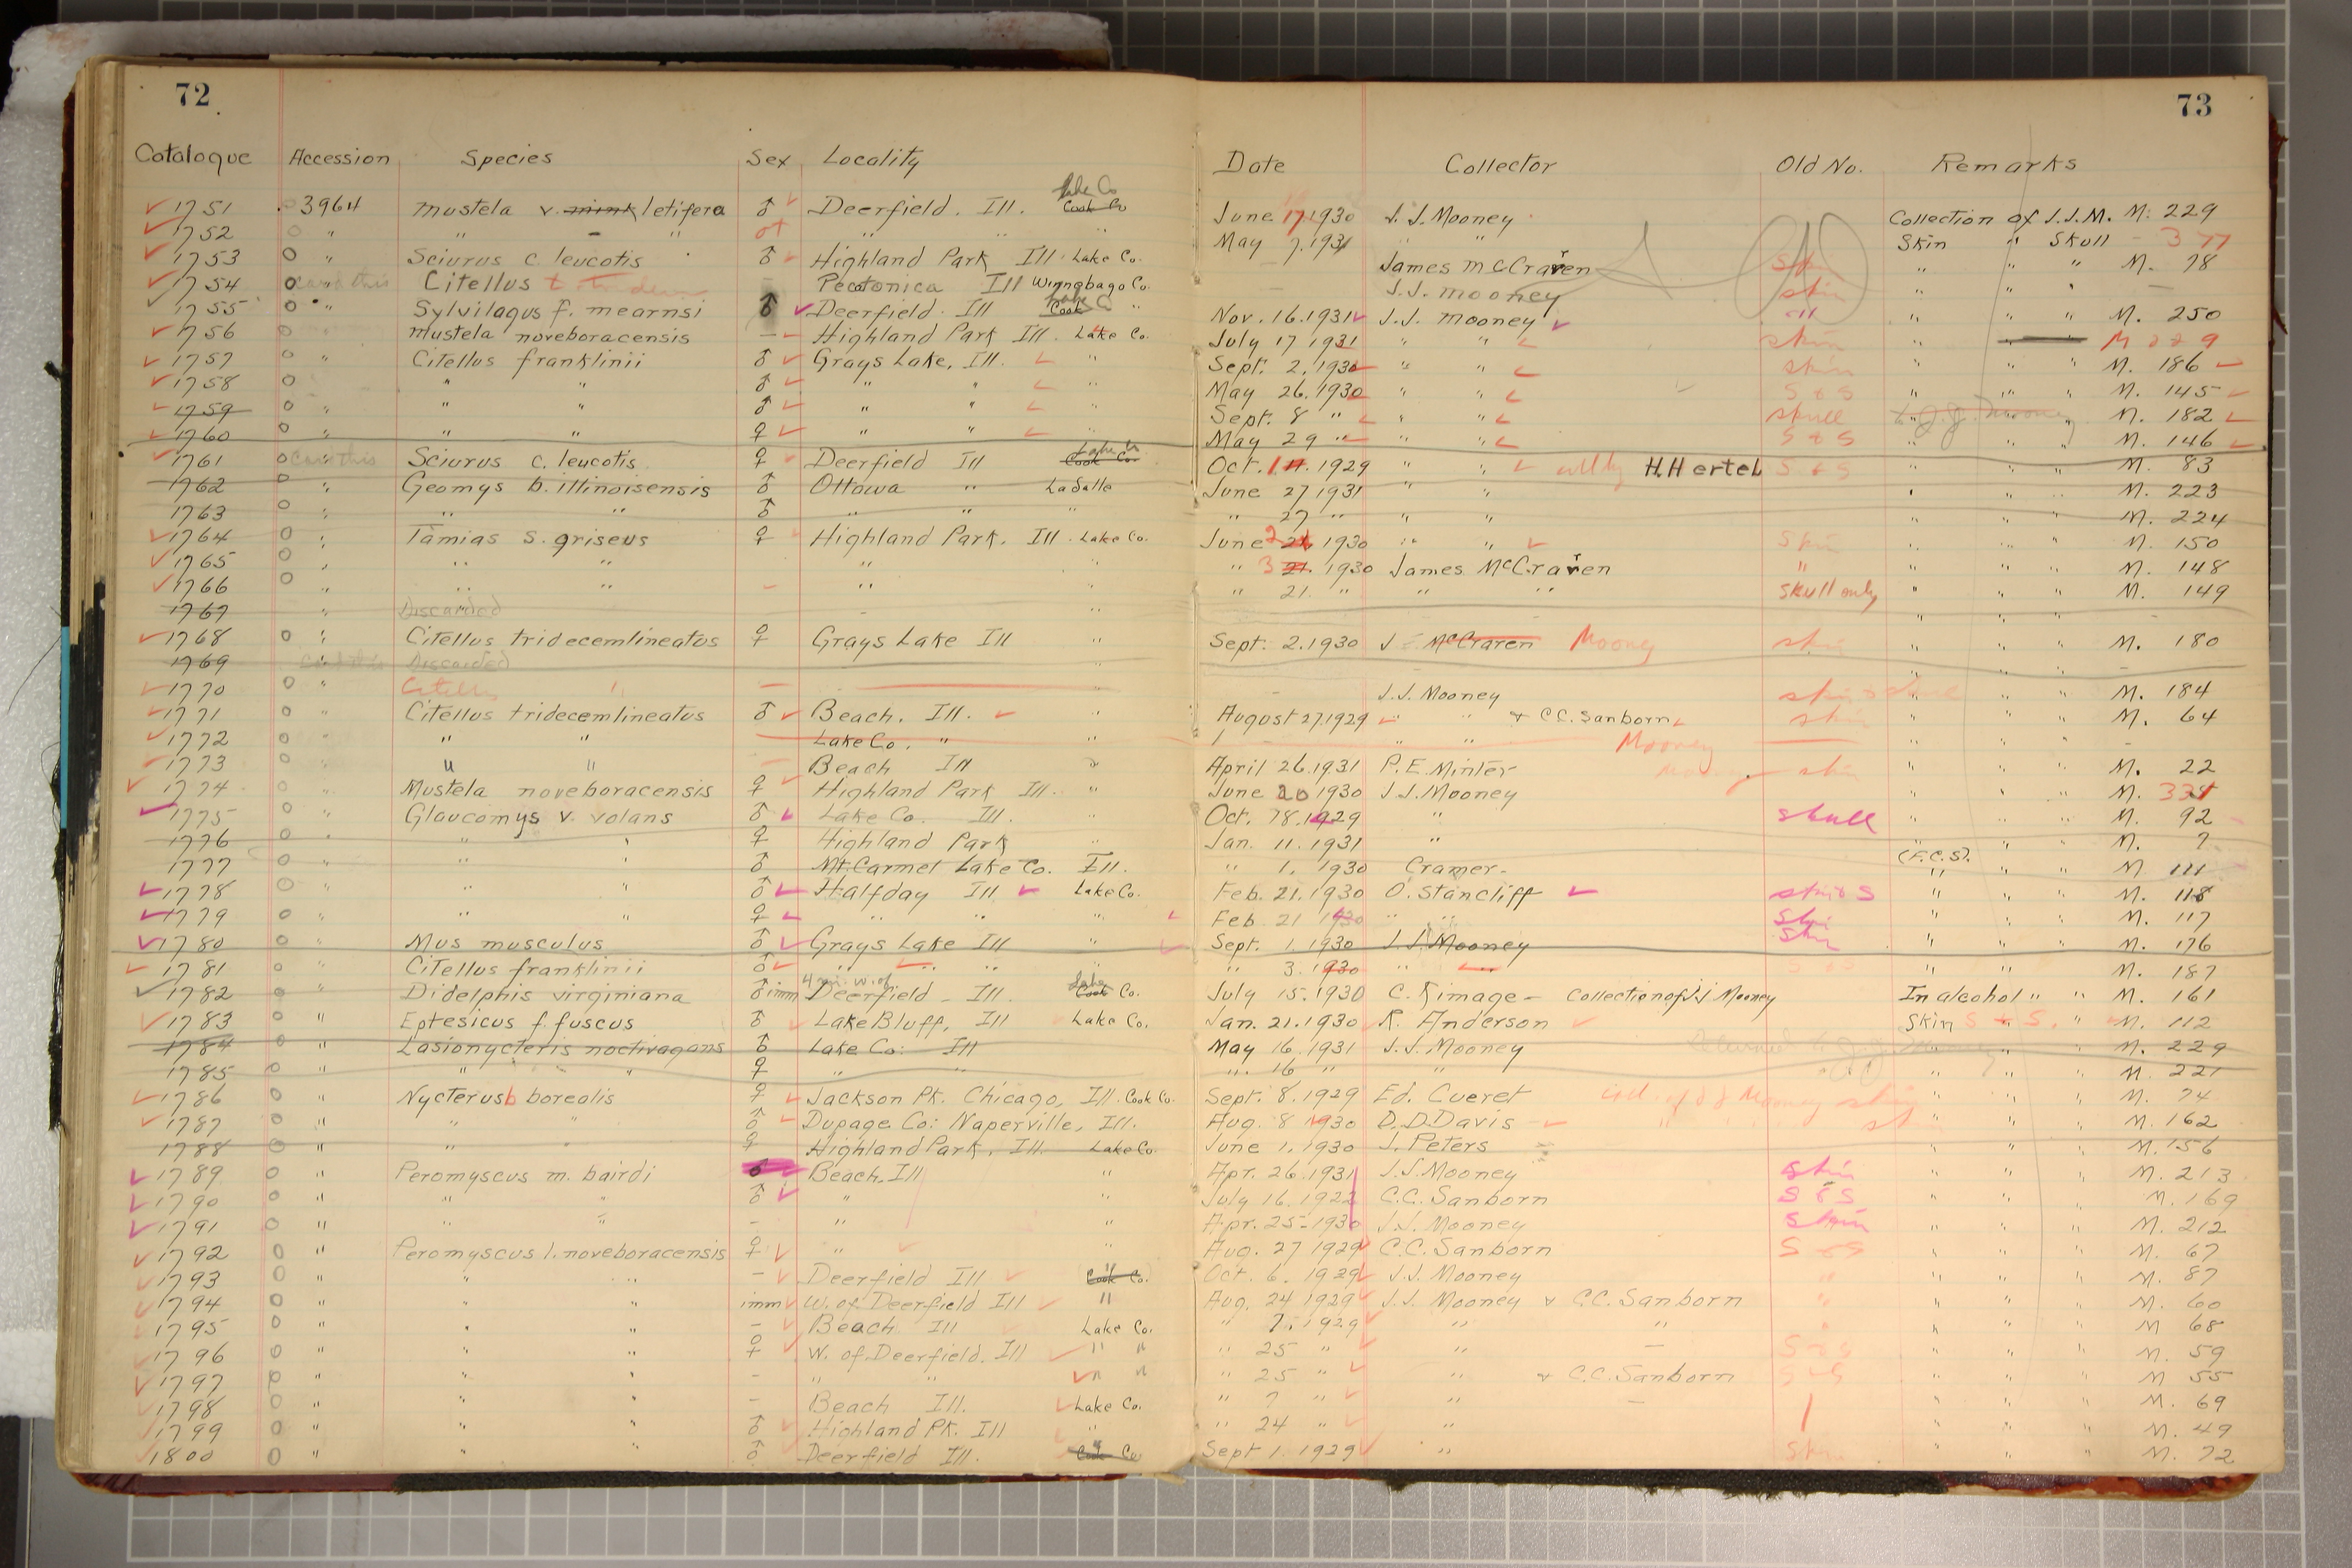 72
73
Catalogue Accession Species Sex Locality Date Collector Old No. Remarks
1751 3964 Mustela v. mink letifera ♂ Deerfield. Ill. Lake Co Cook Co June 17. 1930 J. J. Mooney Collection of J.J.M. M. 229
1752 " " - " " " May 7. 1931 " " Skin " Skull - 377
1753 " Sciurus c. leucotis ♂ Highland Park Ill. Lake Co. James McCraren Skin " " " M. 78
1754 Citellus Pecatonica Ill Winnebago Co. J.J. Mooney skin " " " -
1755 " Sylvilagus f. mearnsi ♂ Deerfield. Ill Lake Co Cook " Nov. 16. 1931 J.J. Mooney " " " M. 250
1756 Mustela noveboracensis - Highland Park Ill. Lake Co. July 17 1931 " " skin " M 229
1757 " Citellus franklinii ♂ Grays Lake, Ill. " Sept. 2. 1930 " " skin " " " M. 186
1758 " " ♂ " " " May 26. 1930 " " S & S " " " M. 145
1759 " " " ♂ " " " Sept. 8 " " " skull J.J. Mooney M. 182
1760 " " " ♀ " " May 29 " " " S & S " " " M. 146
1761 " Sciurus c. leucotis ♀ Deerfield Ill Lake Co Cook Co. Oct. 1929 " " H. Hertel S & S " " " M. 83
1762 " Geomys b. illinoisensis ♂ Ottawa " LaSalle June 27 1931 " " " " " M. 223
1763 " " " ♂ " " " " 27 " " " " " " M. 224
1764 " Tamias s. griseus ♀ Highland Park. Ill. Lake Co. June 2 1930 " " Skin " " " M. 150
1765 " " " " " 3 21. 1930 James McCraren " " " " M. 148
1766 " " " - " " 21. " " " skull only " " " M. 149
1767 " Discarded " " " "
1768 " Citellus tridecemlineatus ♀ Grays Lake Ill " Sept. 2. 1930 J McCraren Mooney skin " " " M. 180
1769 Discarded " " " " -
1770 " " - " - J.J. Mooney skin " " " M. 184
1771 " Citellus tridecemlineatus ♂ Beach. Ill. " August 27, 1929 " " & C.C. Sanborn skin " " " M. 64
1772 " " " Lake Co. " " " " Mooney " " " -
1773 " " " - Beach Ill " April 26. 1931 P.E. Minter skin " " " M. 22
1774 " Mustela noveboracensis ♀ Highland Park Ill. " June 20 1930 J.J. Mooney " " " M.
1775 " Glaucomys v. volans ♂ Lake Co. Ill. " Oct. 18. 1929 " skull " " " M. 92
1776 " " " ♀ Highland Park Jan. 11. 1931 " " " " M. 7
1777 " " ♂ Mt. Carmel Lake Co. Ill. " 1. 1930 Cramer. (F.C.S). " " M 111
1778 " " ♂ Halfday Ill Lake Co. Feb. 21. 1930 O. Stancliff skin & S " " " M. 118
1779 " " " ♀ " " " Feb. 21 1930 " " Skin " " " M. 117
1780 " Mus musculus ♂ Grays Lake Ill " Sept. 1. 1930 J.J. Mooney Skin " " " M. 176
1781 " Citellus franklinii ♂ " " " " 3. 1930 " " " " M. 187
1782 " Didelphis virginiana ♂ imm 4 mi. w. of Deerfield - Ill. Lake Cook Co. July 15. 1930 C. Rimage - Collection of J.J. Mooney In alcohol " " M. 161
1783 " Eptesicus f. fuscus ♂ Lake Bluff, Ill Lake Co. Jan. 21. 1930 R. Anderson Skin & S. " M. 112
1784 " Lasionycteris noctivagans ♂ Lake Co. Ill May 16. 1931 J.J. Mooney " " M. 229
1785 " " " ♀ " " " 16 " " " " " M. 221
1786 " Nycterus borealis ♀ Jackson Pk. Chicago, Ill. Cook Co. Sept. 8. 1929 Ed. Cueret coll. of J J Mooney skin " " " M. 74
1787 " " " ♂ Dupage Co: Naperville, Ill. Aug. 8 1930 D.D. Davis skin " " " M. 162
1788 " " " ♀ Highland Park, Ill. Lake Co. June 1. 1930 J. Peters " " " M. 156
1789 " Peromyscus m. bairdi ♂ Beach. Ill " Apr. 26. 1931 J.J. Mooney Skin " " " M. 213
1790 " " " ♂ " " July 16. 1922 C.C. Sanborn S & S " " " M. 169
1791 " " " - " " Apr. 25. 1930 J.J. Mooney Skin " " " M. 212
1792 " Peromyscus l. noveboracensis ♀ " " Aug. 27 1929 C.C. Sanborn S & S " " " M. 67
1793 " " " - Deerfield Ill " Cook Co. Oct. 6. 1929 J.J. Mooney " " " " M. 87
1794 " " " imm W. of Deerfield Ill " Aug. 24 1929 J.J. Mooney & C.C. Sanborn " " " " M. 60
1795 " " " - Beach Ill Lake Co. " 7. 1929 " " " " " M 68
1796 " " " ♀ W. of Deerfield. Ill " " " 25 " " - S & S " " " M. 59
1797 " " " - " " " " " 25 " " & C.C. Sanborn S & S " " " M 55
1798 " " " - Beach Ill. Lake Co. " 7 " " - " " " M. 69
1799 " " " ♂ Highland Pk. Ill " " 24 " " " " " M. 49
1800 " " " ♂ Deerfield Ill. " Cook Co Sept 1. 1929 " Skin " " " M. 72